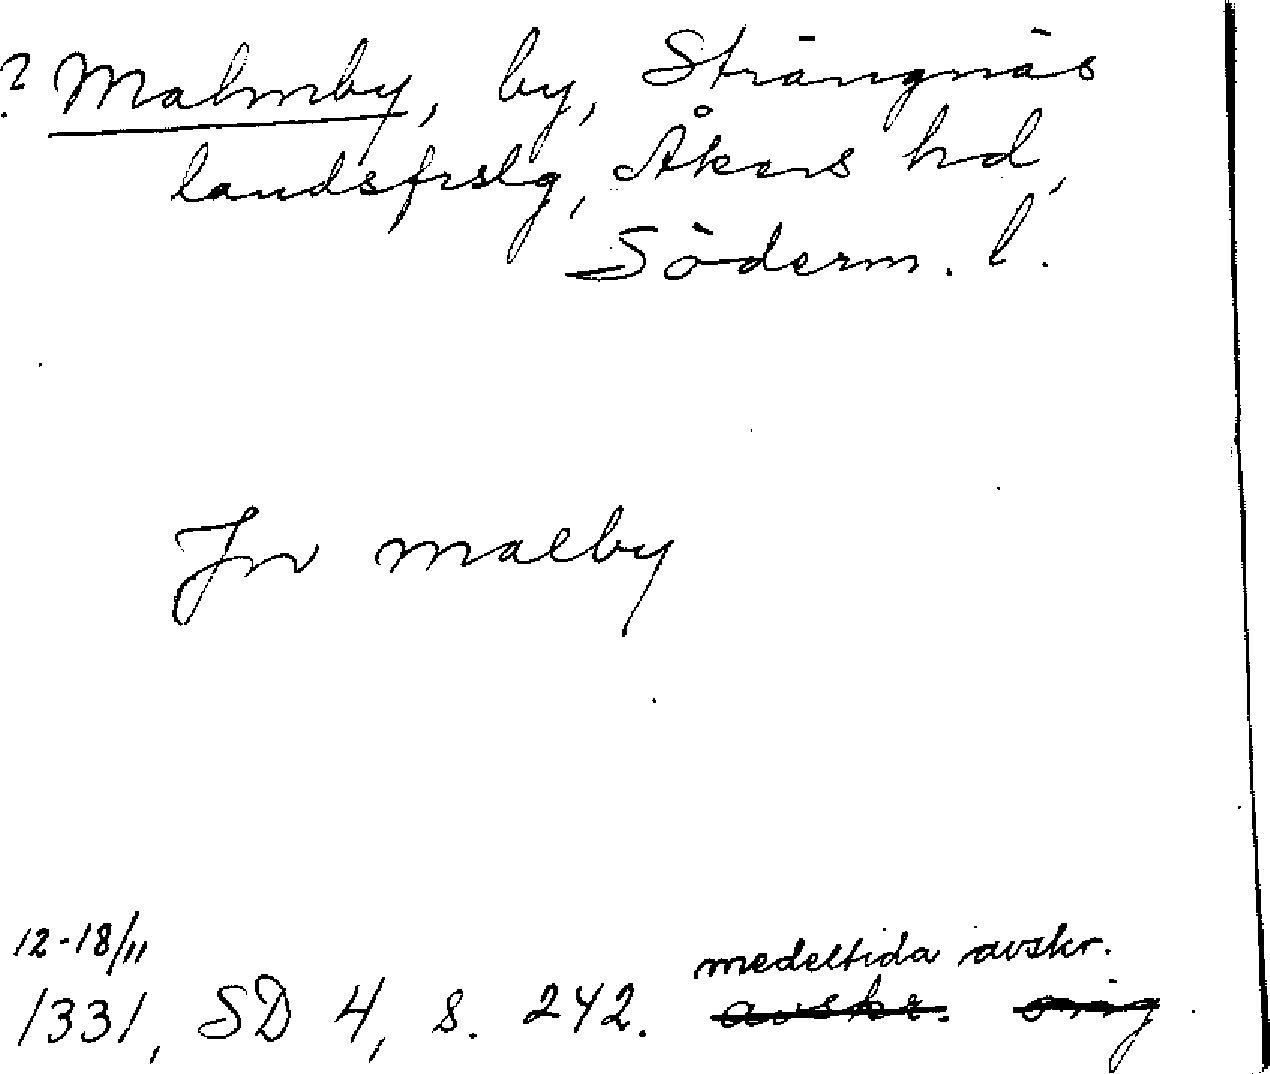 ? Malmby, by, Strängnäs
landsfrslg, Åkers hd,
Söderm. l.
Jn malby
12-18/11
medeltida avskr.
1331, SD 4, s. 242. avskr. orig